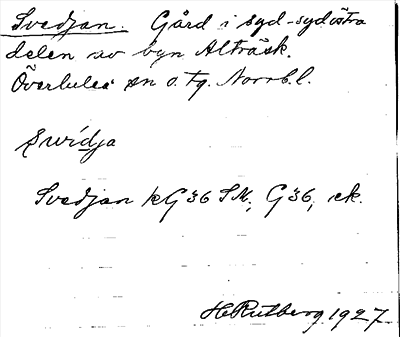 Svedjan. Gård i syd-sydöstra
delen av byn Alträsk.
Överluleå sn o. tg. Norrb. l.
Svidja
Svedjan kG36 SM; G36, ek.
H Rutberg 1927.